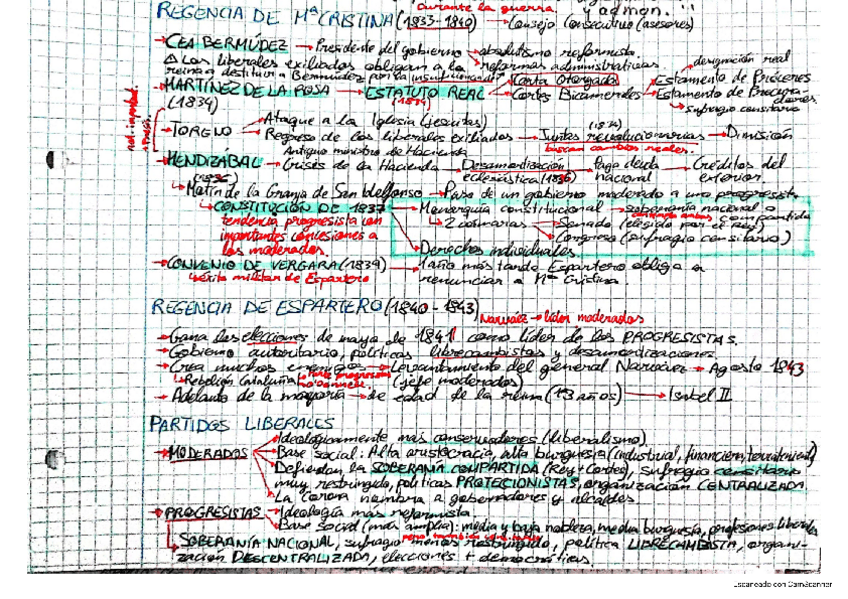 durante la guerra y admon.
REGENCIA DE Mª CRISTINA (1833-1840) → Consejo Consultivo (asesores)
→ CEA BERMÚDEZ → Presidente del gobierno → absolutismo reformista.
⚠ Los liberales exiliados obligan a la → reformas administrativas. designación real
reina a destituir a Bermúdez por la insuficiencia → Carta Otorgada Estamento de Próceres
→ MARTÍNEZ DE LA ROSA → ESTATUTO REAL → Cortes Bicamerales → Estamento de Procuradores.
(1834) (1834) → sufragio censitario
→ TORENO → Ataque a la Iglesia (jesuitas) (1835)
→ Regreso de los liberales exiliados → Juntas revolucionarias → Dimisión
Antiguo ministro de Hacienda buscan cambios reales.
→ MENDIZÁBAL → Crisis de la Hacienda → Desamortización → Pago deuda → Créditos del
(1835) eclesiástica (1836) nacional exterior.
→ Motín de la Granja de San Ildelfonso → Paso de un gobierno moderado a uno progresista
→ CONSTITUCIÓN DE 1837 → Monarquía constitucional → soberanía nacional o
tendencia progresista con compartida
importantes concesiones a → 2 cámaras → Senado (elegido por el Rey)
los moderados. → Congreso (sufragio censitario)
Derechos individuales.
→ CONVENIO DE VERGARA (1839) → 1 año más tarde Espartero obliga a
éxito militar de Espartero renunciar a Mª Cristina.
REGENCIA DE ESPARTERO (1840-1843)
Narváez → líder moderados
→ Gana las elecciones de mayo de 1841 como líder de los PROGRESISTAS.
→ Gobierno autoritario, políticas librecambistas y desamortizaciones.
→ Crea muchos enemigos → Levantamiento del general Narváez → Agosto 1843
→ Rebelión Cataluña (jefe moderados)
→ Adelanto de la mayoría → de edad de la reina (13 años) → Isabel II
PARTIDOS LIBERALES
→ Ideológicamente más conservadores (liberalismo).
→ MODERADOS → Base social: Alta aristocracia, alta burguesía (industrial, financiera, terrateniente)
Defienden la SOBERANÍA COMPARTIDA (Rey + Cortes), sufragio censitario
muy restringido, políticas PROTECCIONISTAS, organización CENTRALIZADA
La corona nombra a gobernadores y alcaldes
→ PROGRESISTAS → Ideología más reformista
→ Base social (más amplia): media y baja nobleza, media burguesía, profesiones liberales
pero también censitario
→ SOBERANÍA NACIONAL, sufragio menos restringido, política LIBRECAMBISTA, organi-
zación DESCENTRALIZADA, elecciones + democráticas.
Escaneado con CamScanner